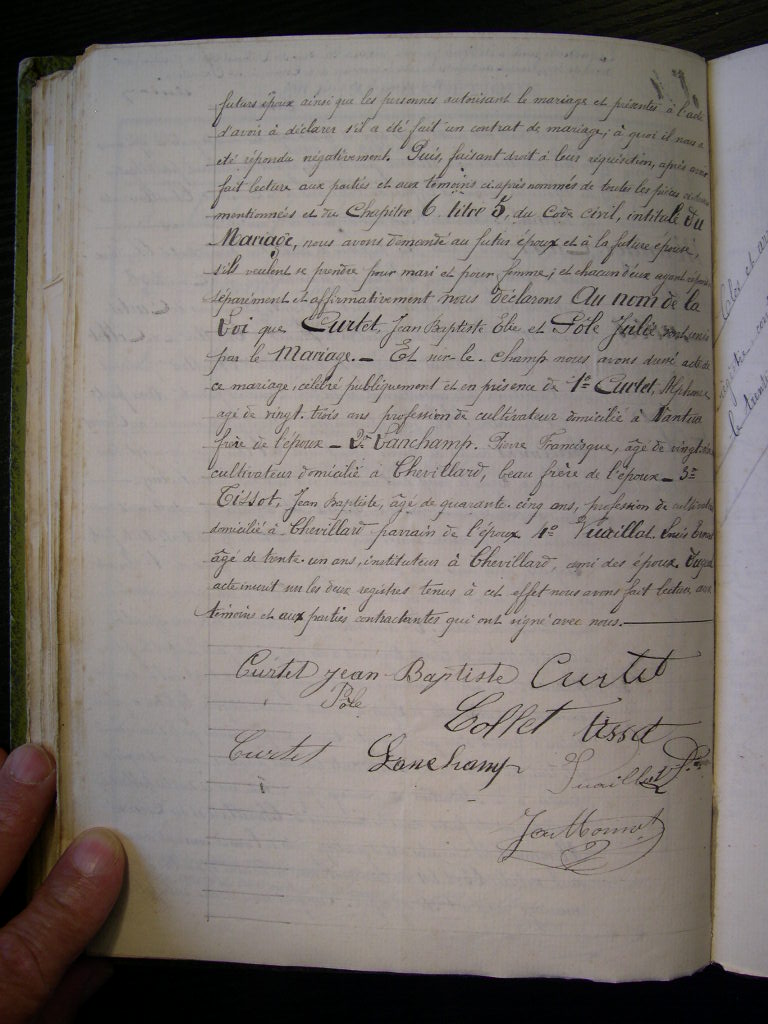 futurs époux ainsi que les personnes autorisant le mariage et présentes à l'acte
d'avoir à déclarer s'il a été fait un contrat de mariage, à quoi il nous a
été répondu négativement. Puis, faisant droit à leur réquisition, après avoir
fait lecture aux parties et aux témoins ci-après nommés de toutes les pièces
mentionnées et du Chapitre 6. titre 5, du Code civil, intitulé Du
Mariage, nous avons demandé au futur époux et à la future épouse,
s'ils veulent se prendre pour mari et pour femme; et chacun d'eux ayant répondu
séparément et affirmativement nous déclarons Au nom de la
Loi que Curtet, Jean Baptiste Elie et Pôle Julie sont unis
par le Mariage. _ Et sur-le-champ nous avons dressé acte de
ce mariage, célébré publiquement et en présence de 1º Curtet, Alphonse
âgé de vingt-trois ans profession de cultivateur domicilié à Nantua
frère de l'époux _ 2º Lanchamp. Pierre Francisque, âgé de
cultivateur domicilié à Chevillard, beau frère de l'époux _ 3º
Tissot, Jean Baptiste, âgé de quarante-cinq ans, profession de cultivateur
domicilié à Chevillard parrain de l'époux 4º Vuaillat. Louis
âgé de trente-un ans, instituteur à Chevillard, ami des époux.
acte inscrit sur les deux registres tenus à cet effet nous avons fait lecture aux
témoins et aux parties contractantes qui ont signé avec nous.
Curtet Jean Baptiste Curtet
Pôle
Collet Tissot
Curtet Lanchamp Vuaillat